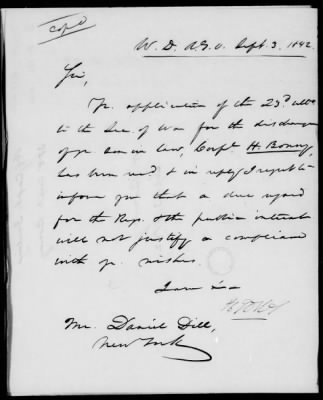 Copy
W. D. A.G.O. Sept. 3. 1842.
Sir,
Yr. application of the 23d ulto
to the Sec. of War for the discharge
of yr. son in law, Corpl H.
has been recd & in reply I regret to
inform you that a due regard
for the Regs. & the public interest
will not justify a compliance
with yr. wishes.
I am &c
Mr. Daniel Dill,
New York